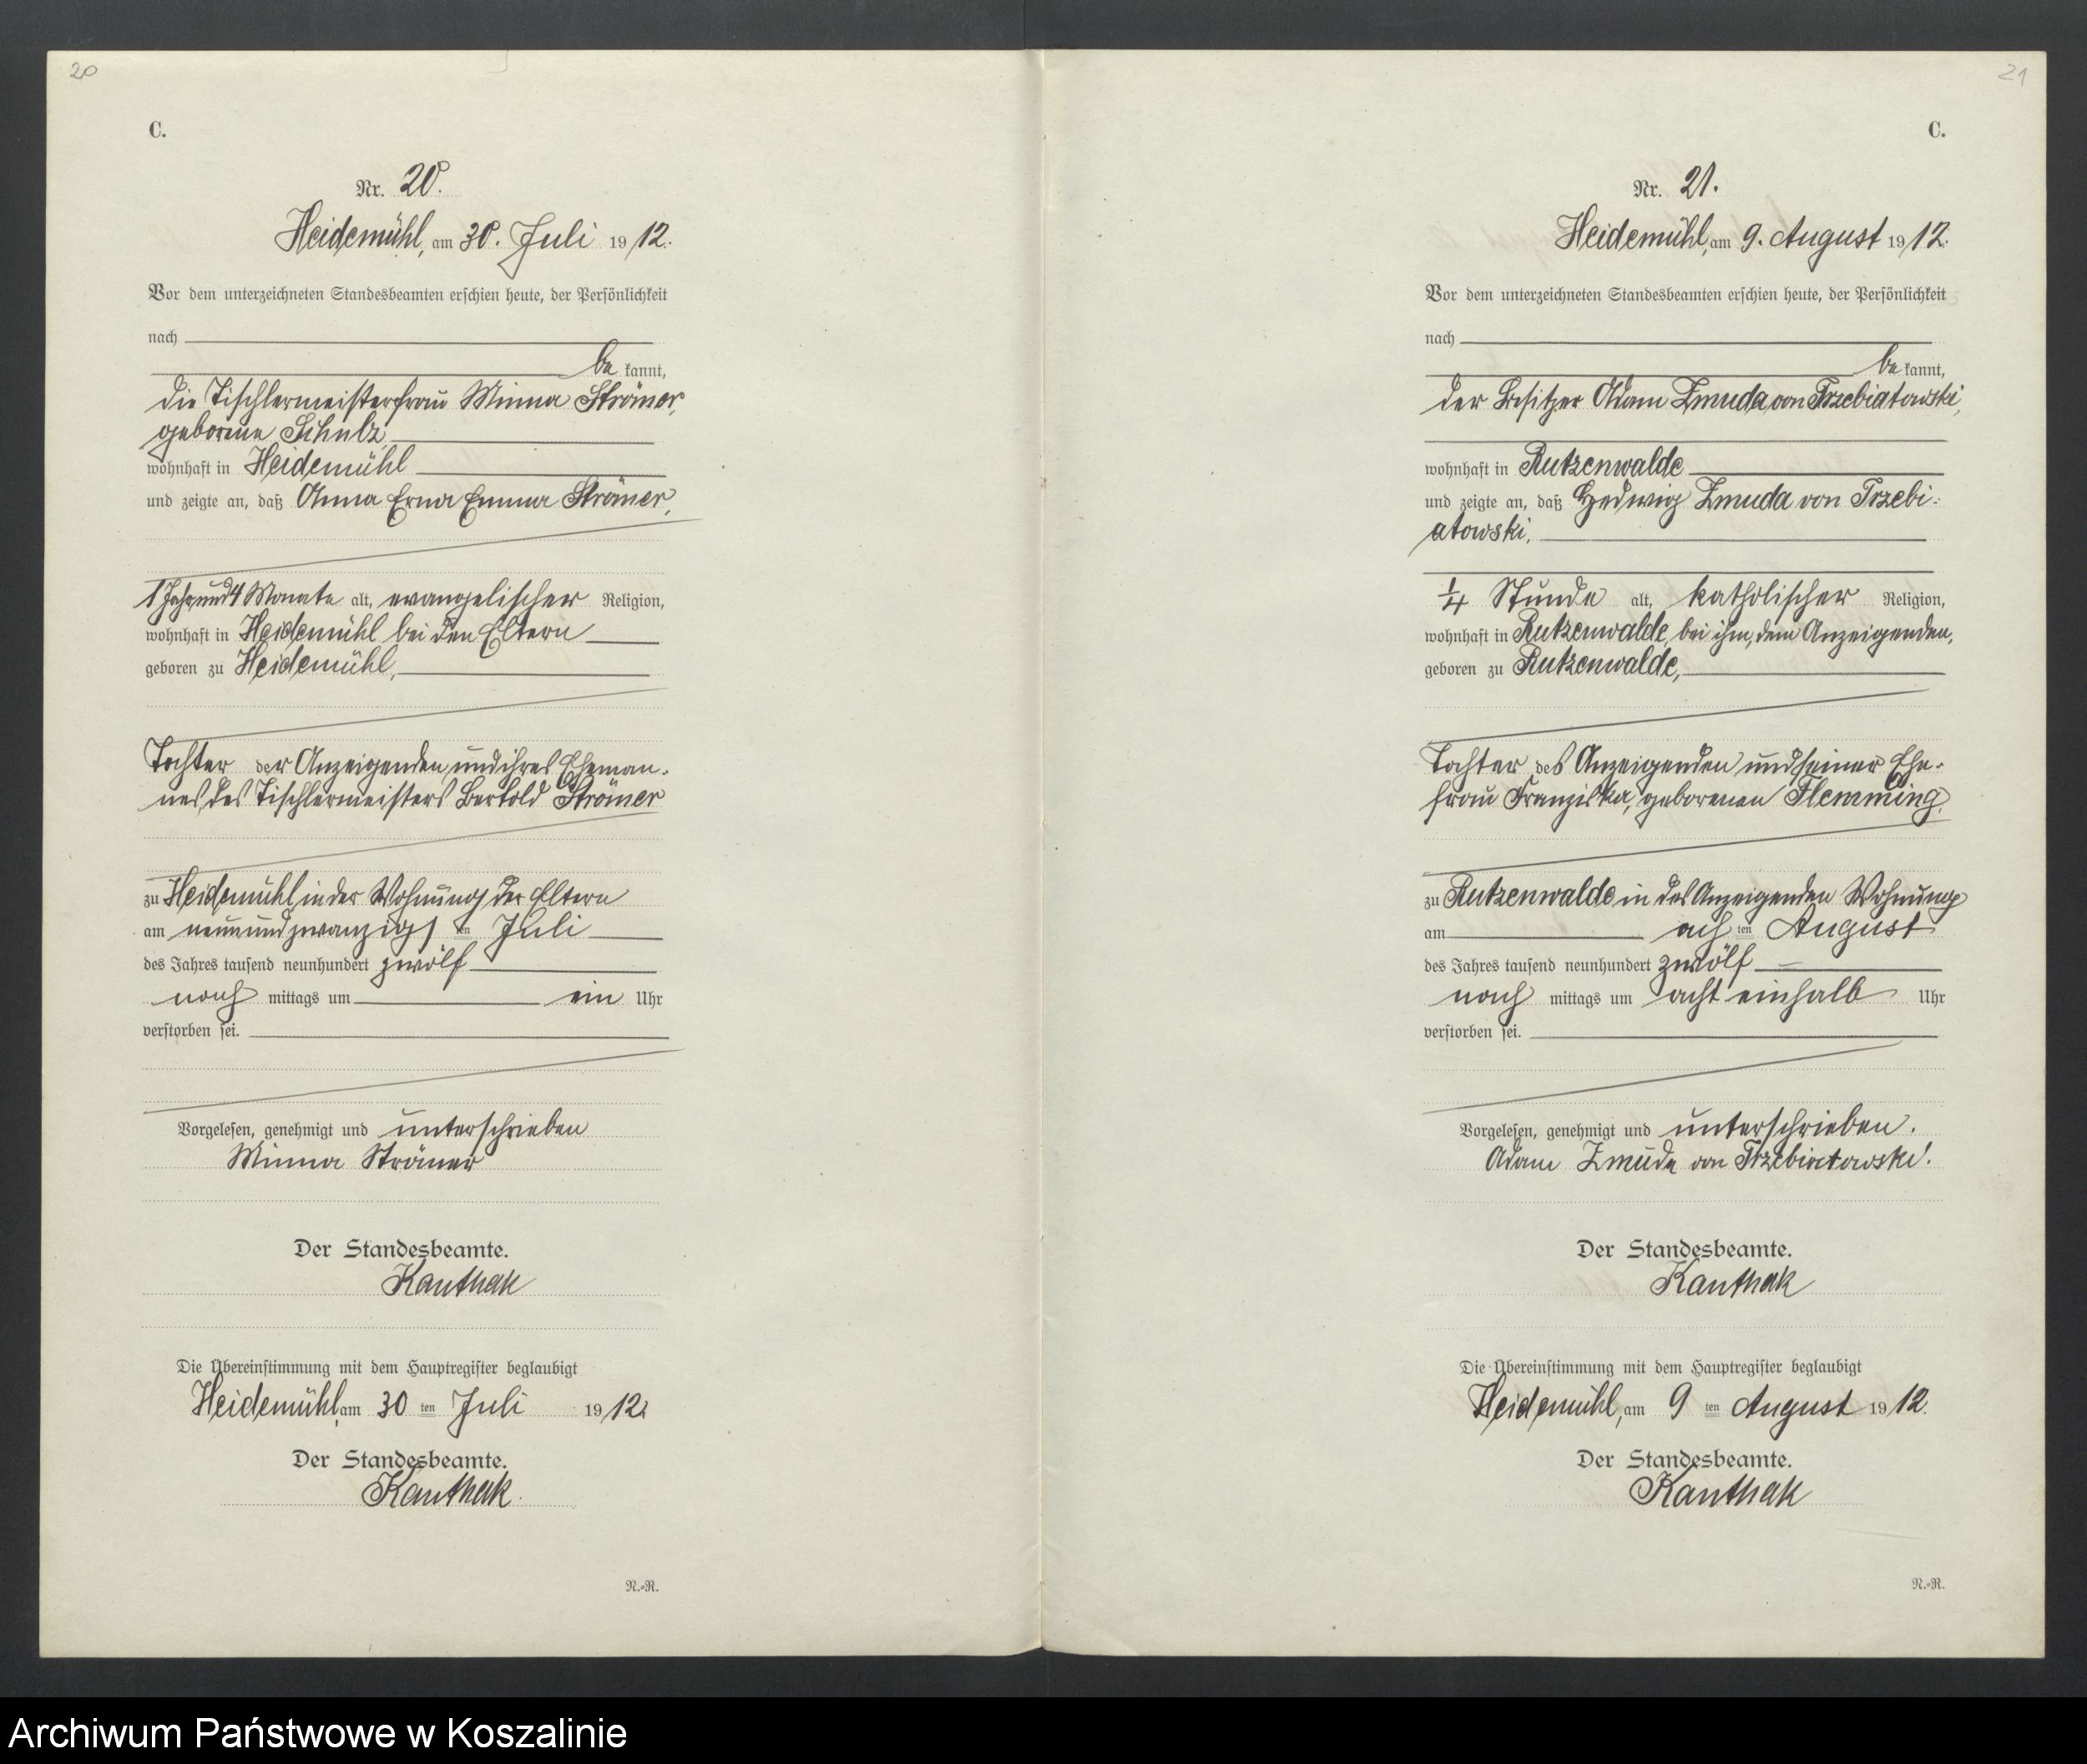 20
C.
Nr. 20.
Heidemühl, am 30. Juli 1912.
Vor dem unterzeichneten Standesbeamten erschien heute, der Persönlichkeit
nach
be kannt,
die Tischlermeisterfrau Minna Strömer,
geborene Schulz
wohnhaft in Heidemühl
und zeigte an, daß Anna Erna Emma Strömer,
1 Jahr und 4 Monate alt, evangelischer Religion,
wohnhaft in Heidemühl bei den Eltern
geboren zu Heidemühl,
Tochter der Anzeigenden und ihres Eheman-
nes, des Tischlermeisters Bertold Strömer
zu Heidemühl in der Wohnung der Eltern
am neunundzwanzigsten Juli
des Jahres tausend neunhundert zwölf
nach mittags um ein Uhr
verstorben sei.
Vorgelesen, genehmigt und unterschrieben
Minna Strömer
Der Standesbeamte.
Kanthak
Die Übereinstimmung mit dem Hauptregister beglaubigt
Heidemühl, am 30 ten Juli 1912.
Der Standesbeamte.
Kanthak.
N.-R.
21
C.
Nr. 21.
Heidemühl, am 9. August 1912.
Vor dem unterzeichneten Standesbeamten erschien heute, der Persönlichkeit
nach
be kannt,
der Besitzer Adam Zmuda von Trzebiatowski,
wohnhaft in Rutzenwalde
und zeigte an, daß Hedwig Zmuda von Trzebi-
atowski,
1/4 Stunde alt, katholischer Religion,
wohnhaft in Rutzenwalde, bei ihm, dem Anzeigenden,
geboren zu Rutzenwalde,
Tochter des Anzeigenden und seiner Ehe-
frau Franziska, geborenen Flemming.
zu Rutzenwalde in des Anzeigenden Wohnung
am achten August
des Jahres tausend neunhundert zwölf
nach mittags um acht einhalb Uhr
verstorben sei.
Vorgelesen, genehmigt und unterschrieben.
Adam Zmuda von Trzebiatowski.
Der Standesbeamte.
Kanthak
Die Übereinstimmung mit dem Hauptregister beglaubigt
Heidemühl, am 9 ten August 1912.
Der Standesbeamte.
Kanthak
N.-R.
Archiwum Państwowe w Koszalinie